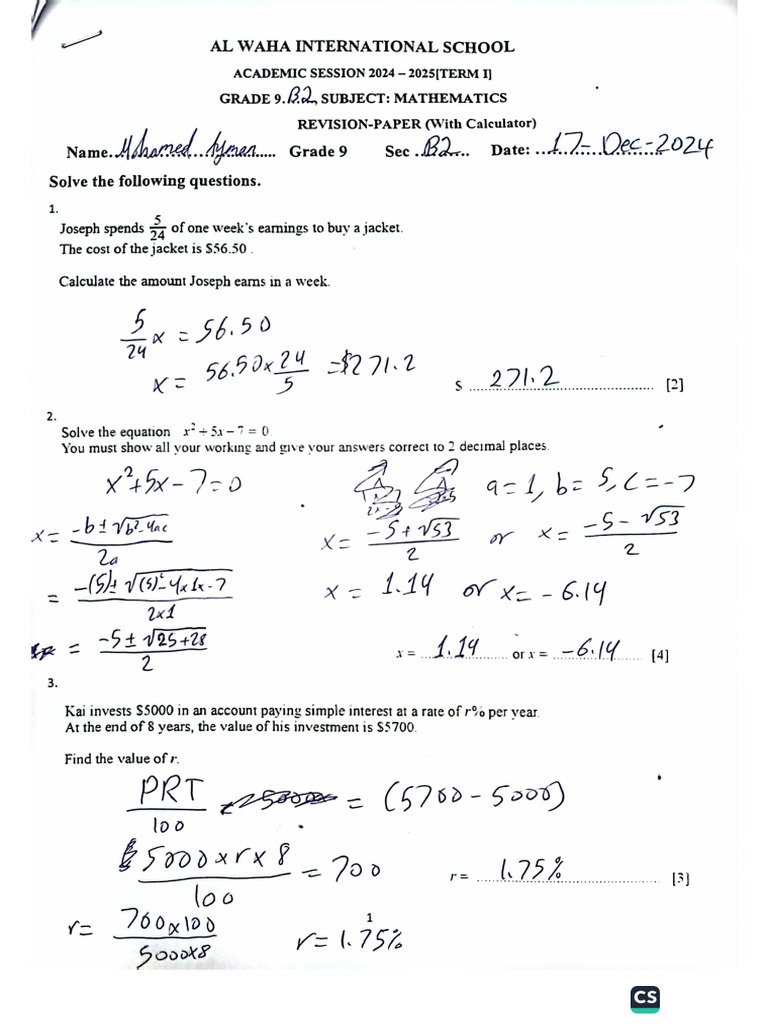 AL WAHA INTERNATIONAL SCHOOL
ACADEMIC SESSION 2024 – 2025[TERM I]
GRADE 9.B2, SUBJECT: MATHEMATICS
REVISION-PAPER (With Calculator)
Name..Mohamed Ayman..... Grade 9 Sec ..B2.... Date: ...17-Dec-2024
Solve the following questions.
1.
Joseph spends 5/24 of one week's earnings to buy a jacket.
The cost of the jacket is $56.50 .
Calculate the amount Joseph earns in a week.
5/24 x = 56.50
x = 56.50 x 24/5 = $271.2
$ ...271.2... [2]
2.
Solve the equation x² + 5x – 7 = 0
You must show all your working and give your answers correct to 2 decimal places.
x²+5x-7=0
a=1, b=5, c=-7
x= -b ± √b²-4ac / 2a
x= -5+√53 / 2 or x= -5-√53 / 2
= -(5)± √(5)²-4x1x-7 / 2x1
x = 1.14 or x= -6.14
= -5± √25+28 / 2
x = ...1.14... or x = ...-6.14... [4]
3.
Kai invests $5000 in an account paying simple interest at a rate of r% per year.
At the end of 8 years, the value of his investment is $5700.
Find the value of r.
PRT/100 = (5700-5000)
5000xrx8 / 100 = 700
r = ...1.75%... [3]
r= 700x100 / 5000x8
r=1.75%
1
CS